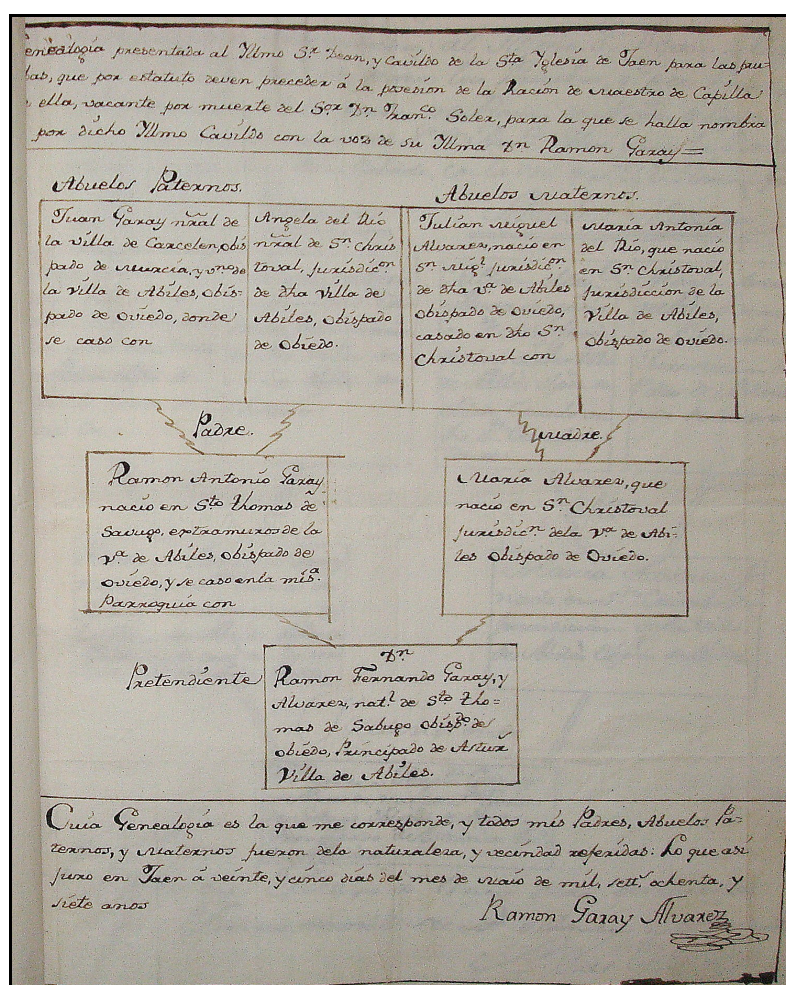 enealogia presentada al Yllmo Sr. Dean, y Cavildo de la Sta Yglesia de Jaen para las prue=
bas, que por estatuto deven preceder á la posesion de la Ración de Maestro de Capilla
ella, vacante por muerte del Sor Dn Franco. Soler, para la que se halla nombra
por dicho Yllmo Cavildo con la voz de su Yllma Dn Ramon Garay=
Abuelos Paternos.
Juan Garay ñral de
la villa de Carcelen, obis
pado de Murcia, y vno de
la Villa de Abiles, obis=
pado de Oviedo, donde
se caso con
Angela del Rio
ñral de Sn. Chris
toval, jurisdicon
de dha Villa de
Abiles, obispado
de Obiedo.
Abuelos Maternos.
Julian Miguel
Alvarez, nacio en
Sn Migl jurisdicon
de dha Va de Abiles
obispado de Oviedo,
casado en dho Sn
Christoval con
Maria Antonia
del Rio, que nacio
en Sn Christoval,
jurisdiccion de la
Villa de Abiles,
obispado de Oviedo.
Padre.
Ramon Antonio Garay
nacio en Sto thomas de
Savugo, extramuros de la
Va de Abiles, obispado de
Oviedo, y se caso en la misa.
Parroquia con
Madre.
Maria Alvarez, que
nacio en Sn Christoval
jurisdicn dela Va de Abi=
les Obispado de Oviedo.
Pretendiente
Dn
Ramon Fernando Garay, y
Alvarez, natl de Sto tho=
mas de Sabugo obispdo de
obiedo, Principado de Astur
Villa de Abiles.
Cuia Genealogia es la que me corresponde, y todos mis Padres, Abuelos Pa=
ternos, y Maternos fueron dela naturaleza, y vecindad referidas: Lo que asi
juro en Jaen á veinte, y cinco dias del mes de Maio de mil, sett. ochenta, y
siete anos
Ramon Garay Alvarez